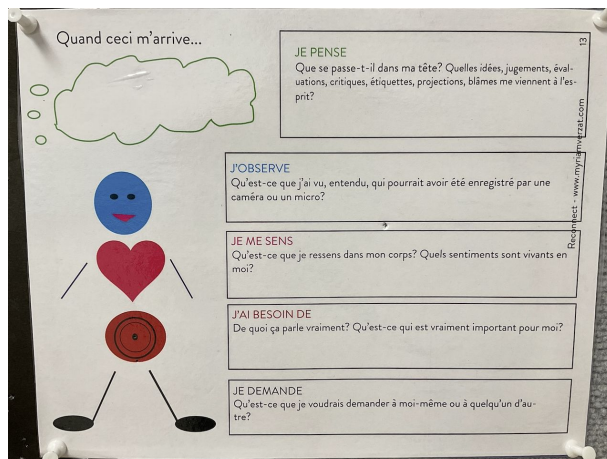 Quand ceci m'arrive...
JE PENSE
Que se passe-t-il dans ma tête? Quelles idées, jugements, éval-
uations, critiques, étiquettes, projections, blâmes me viennent à l'es-
prit?
13
J'OBSERVE
Qu'est-ce que j'ai vu, entendu, qui pourrait avoir été enregistré par une
caméra ou un micro?
JE ME SENS
Qu'est-ce que je ressens dans mon corps? Quels sentiments sont vivants en
moi?
J'AI BESOIN DE
De quoi ça parle vraiment? Qu'est-ce qui est vraiment important pour moi?
JE DEMANDE
Qu'est-ce que je voudrais demander à moi-même ou à quelqu'un d'au-
tre?
Reconnect - www.myriamverzat.com